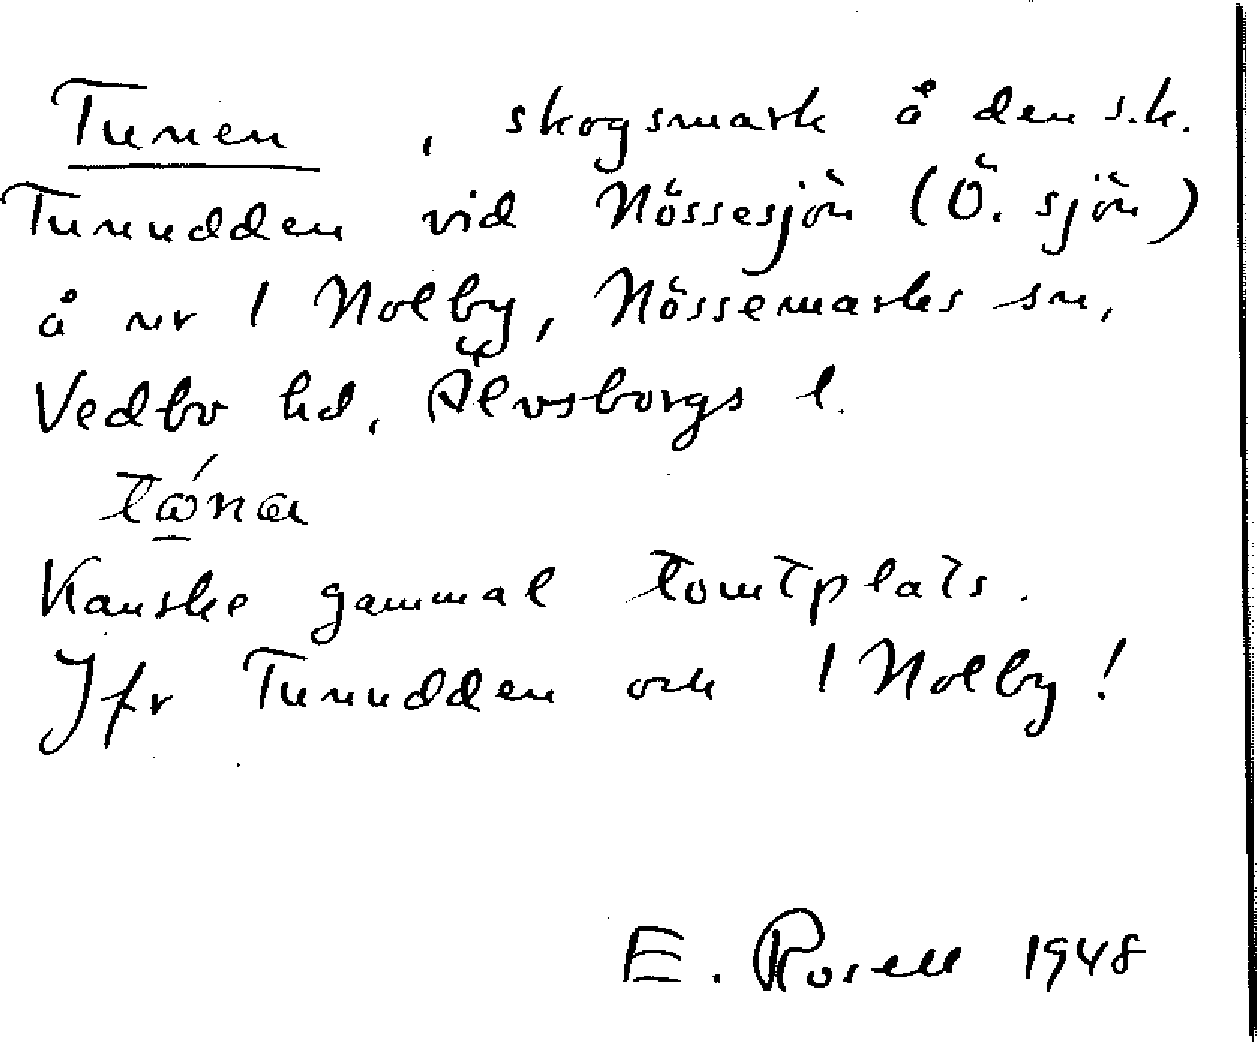 Tunen, skogsmark å den s.k.
Tunudden vid Nössesjön (Ö. sjön)
å nr 1 Nolby, Nössemarks sn,
Vedbo hd, Älvsborgs l.
Kanske gammal tomtplats.
Jfr Tunudden och 1 Nolby!
E. Rosell 1948